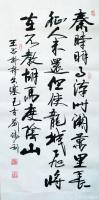 秦時明月漢時關萬里長
征人未還但使龍城飛將
在不教胡馬度陰山
王昌齡詩出塞